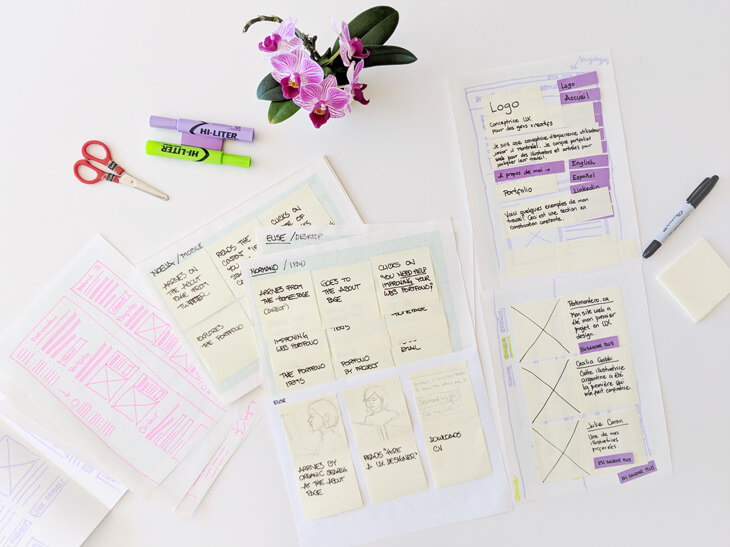 HI-LITER
HI-LITER
NOELIA / MOBILE
ARRIVES
ON THE ABOUT
PAGE FROM
TWITTER
READS THE
CONTENT
YOU
CLICKS ON
EXPLORES
THE PORTFOLIO
ELISE / DESKTOP
NORMAND /
ARRIVES FROM
THE HOMEPAGE
(DIRECT)
GOES TO
THE ABOUT
PAGE
CLICKS ON
"YOU NEED HELP
IMPROVING YOUR
WEB PORTFOLIO?
IMPROVING
WEB PORTFOLIO
ITEMS
THE PORTFOLIO
ITEMS
PORTFOLIO
BY PROJECT
EMAIL
ELISE
ARRIVES BY
ORGANIC SEARCH
AT THE ABOUT
PAGE
READS "HIRE
A UX DESIGNER"
DOWNLOADS
CV
Logo
Logo
Accueil
Conceptrice UX
pour des gens créatifs
Je suis une conceptrice d'expérience utilisateur
junior à Montréal. Je conçois portfolios
web pour des illustrators et artistes pour
partager leur travail.
À propos de moi →
English
Español
LinkedIn
Portfolio
Voici quelques exemples de mon
travail. Ceci est une section en
construction constante.
Portmontero.ca
Mon site web a
été mon premier
projet en UX
design.
EN SAVOIR PLUS
Cecilia
Cette illustratrice
argentine a été
la première qui
m'a fait confiance.
Julie
Une de mes
illustratrices
préférées.
EN SAVOIR PLUS
EN SAVOIR PLUS